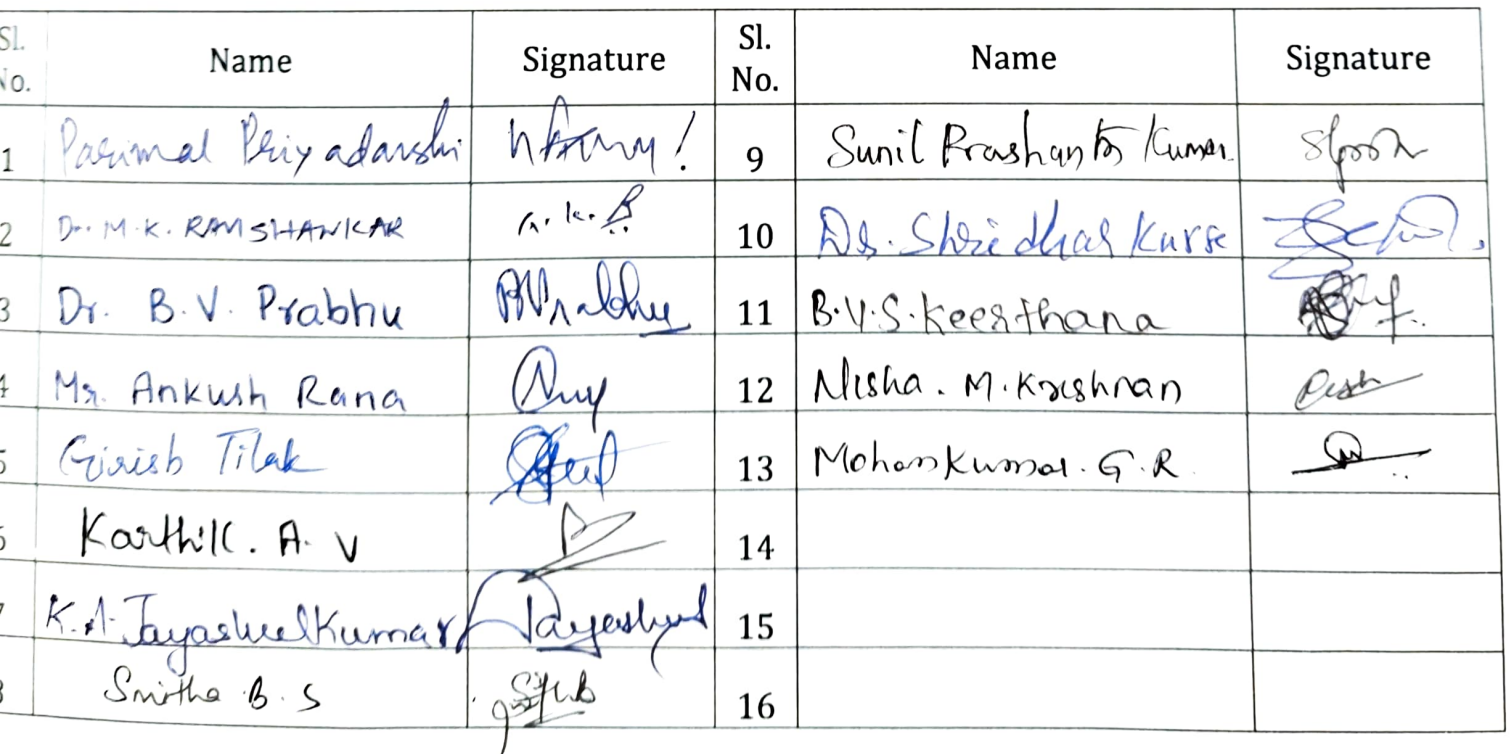 Sl. No. Name Signature Sl. No. Name Signature
1 Parimal Priyadarshi 9 Sunil Prashanth Kumar
2 Dr. M.K. RAMSHANKAR 10 Dr. Shridhar Kurse
3 Dr. B.V. Prabhu 11 B.V.S. Keerthana
4 Mr. Ankush Rana 12 Nisha. M. Krishnan
5 Girish Tilak 13 Mohan Kumar. G. R.
6 Karthik. A. V 14
7 K.A. Jayasheel Kumar 15
8 Smitha B. S 16